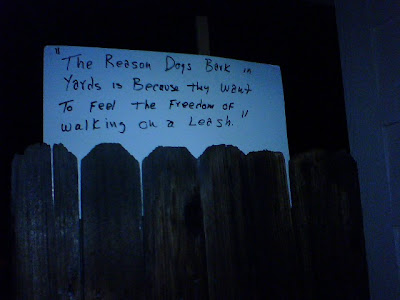 "The Reason Dogs Bark in
Yards is Because thy want
To Feel the Freedom of
walking on a Leash."